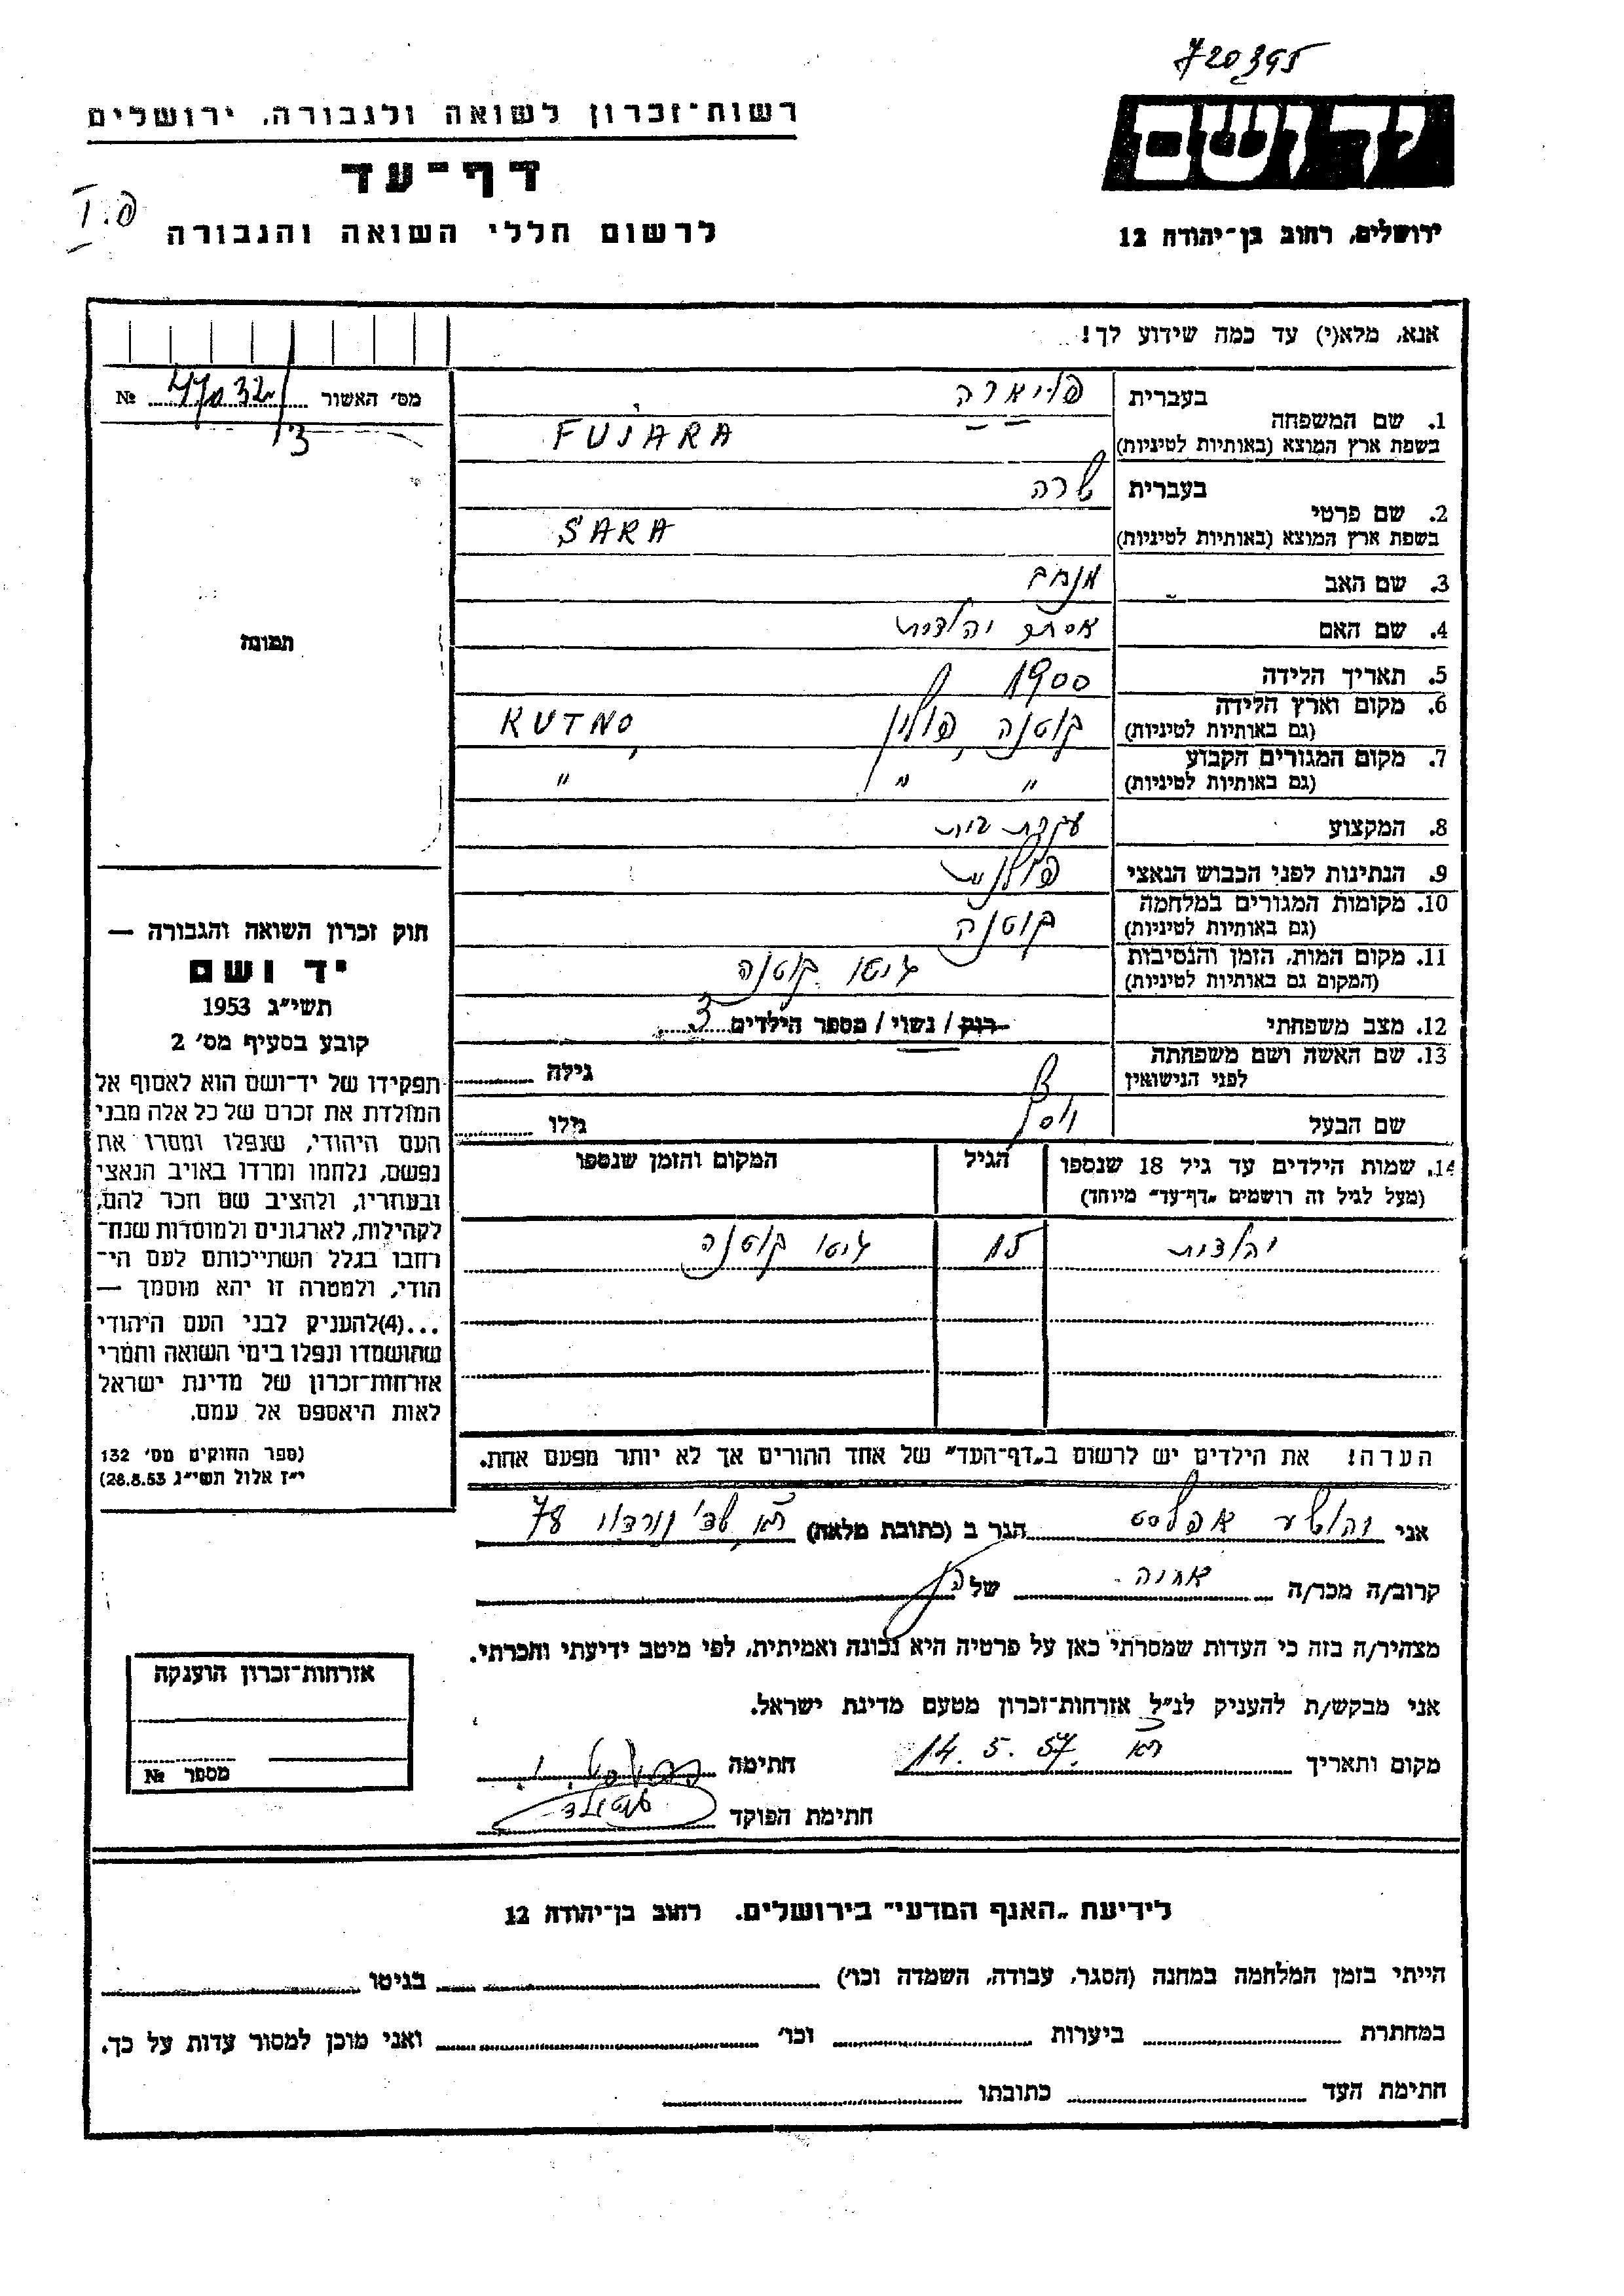 720395
יד ושם
רשות־זכרון לשואה ולגבורה, ירושלים
דף־עד
לרשום חללי השואה והגבורה
ירושלים, רחוב בן־יהודה 12
אנא, מלא(י) עד כמה שידוע לך!
מס׳ האשור № 
1. שם המשפחה
בעברית פויארה
בשפת ארץ המוצא (באותיות לטיניות) FUJARA
2. שם פרטי
בעברית שרה
בשפת ארץ המוצא (באותיות לטיניות) SARA
3. שם האב מנחם
4. שם האם אסתר יהודית
5. תאריך הלידה 1900
6. מקום וארץ הלידה (גם באותיות לטיניות) קוטנה, פולין KUTNO
7. מקום המגורים הקבוע (גם באותיות לטיניות) " " "
8. המקצוע עקרת בית
9. הנתינות לפני הכבוש הנאצי פולנית
10. מקומות המגורים במלחמה (גם באותיות לטיניות) קוטנה
11. מקום המות, הזמן והנסיבות (המקום גם באותיות לטיניות) גיטו קוטנה
12. מצב משפחתי רווק / נשוי / מספר הילדים 3
13. שם האשה ושם משפחתה לפני הנישואין גילה
שם הבעל יוסף גילו
14. שמות הילדים עד גיל 18 שנספו (מעל לגיל זה רושמים „דף־עד" מיוחד) הגיל המקום והזמן שנספו
יהודית 15 גיטו קוטנה
הערה! את הילדים יש לרשום ב„דף־העד" של אחד ההורים אך לא יותר מפעם אחת.
תמונה
חוק זכרון השואה והגבורה —
יד ושם
תשי״ג 1953
קובע בסעיף מס׳ 2
תפקידו של יד־ושם הוא לאסוף אל
המולדת את זכרם של כל אלה מבני
העם היהודי, שנפלו ומסרו את
נפשם, נלחמו ומרדו באויב הנאצי
ובעוזריו, ולהציב שם וזכר להם,
לקהילות, לארגונים ולמוסדות שנח־
רבו בגלל השתייכותם לעם הי־
הודי, ולמטרה זו יהא מוסמך —
...(4)להעניק לבני העם היהודי
שהושמדו ונפלו בימי השואה והמרי
אזרחות־זכרון של מדינת ישראל
לאות היאספם אל עמם.
(ספר החוקים מס׳ 132
י״ז אלול תשי״ג 28.8.53)
אני יהושע אפלסט הגר ב (כתובת מלאה) ת״א, שד׳ נורדוי 78
קרוב/ה מכר/ה אחיה של הנ״ל
מצהיר/ה בזה כי העדות שמסרתי כאן על פרטיה היא נכונה ואמיתית, לפי מיטב ידיעתי והכרתי.
אני מבקש/ת להעניק לנ״ל אזרחות־זכרון מטעם מדינת ישראל.
מקום ותאריך ת״א 14.5.57 חתימה
חתימת הפוקד
אזרחות־זכרון הוענקה
מספר №
לידיעת „האגף המדעי" בירושלים. רחוב בן־יהודה 12
הייתי בזמן המלחמה במחנה (הסגר, עבודה, השמדה וכו׳) בגיטו
במחתרת ביערות וכו׳ ואני מוכן למסור עדות על כך.
חתימת העד כתובתו